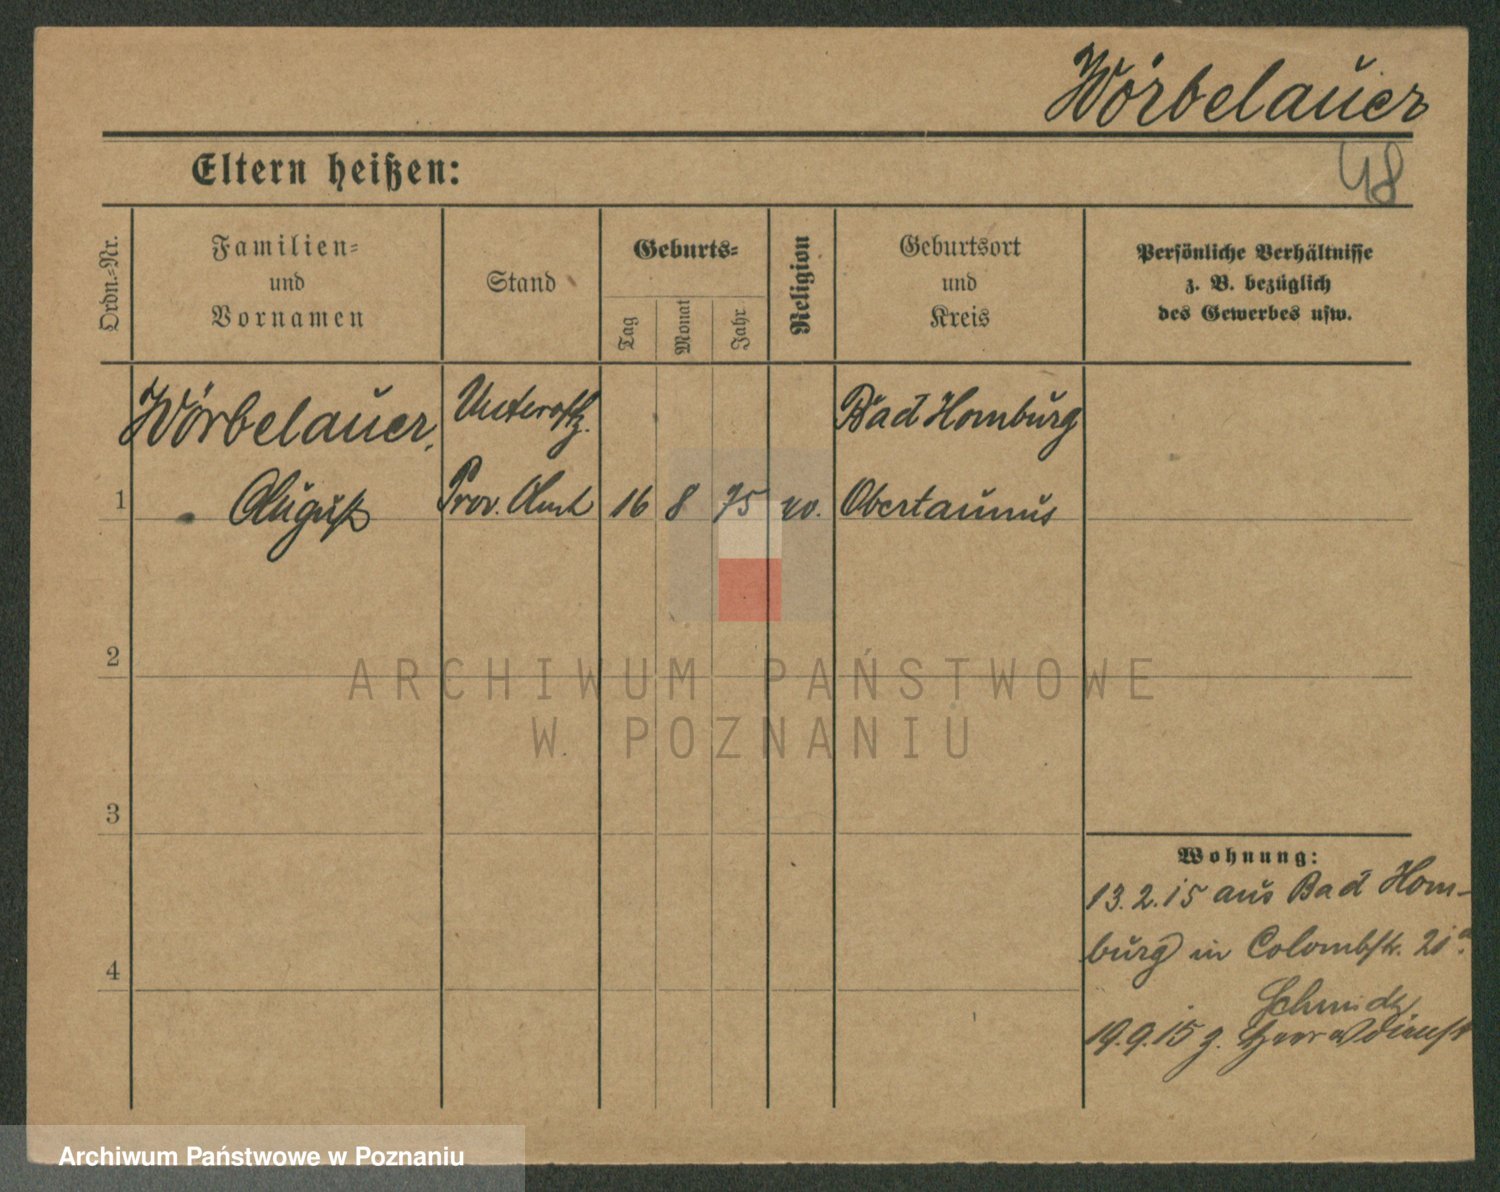 Wörbelauer
48
Eltern heißen:
Ordn.=Nr.
Familien=
und
Vornamen
Stand
Geburts=
Tag
Monat
Jahr
Religion
Geburtsort
und
Kreis
Persönliche Verhältnisse
z. B. bezüglich
des Gewerbes usw.
Wörbelauer,
Unteroffz.
Bad Homburg
1
August
Prov. Amt
16
8
75
Obertaunus
2
ARCHIWUM PAŃSTWOWE
W POZNANIU
3
Wohnung:
13.2.15 aus Bad Hom-
burg in Colombstr. 21a.
4
Schmidt
19.9.15 z. Heeresdienst
Archiwum Państwowe w Poznaniu